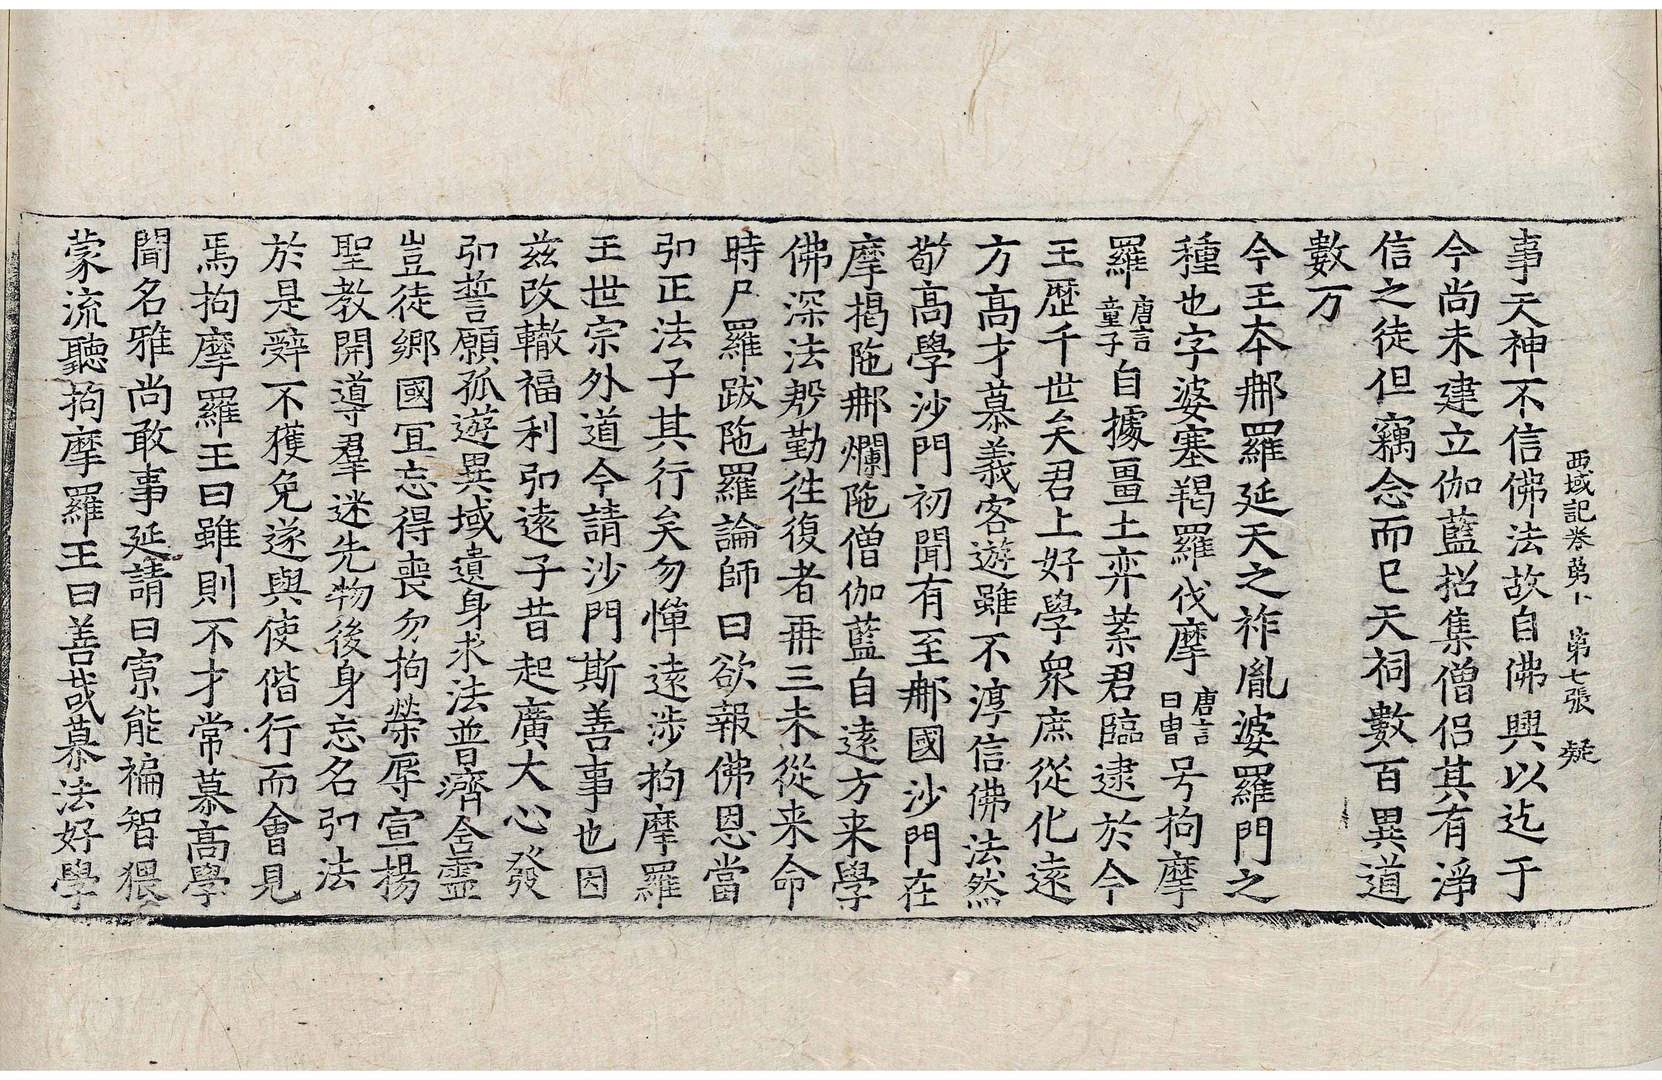 西域記卷第十 第七張 疑
事天神不信佛法故自佛興以迄于
今尚未建立伽藍招集僧侶其有淨
信之徒但竊念而已天祠數百異道
數万
今王本那羅延天之祚胤婆羅門之
種也字婆塞羯羅伐摩唐言日冑号拘摩
羅唐言童子自據畺土弈葉君臨逮於今
王歷千世矣君上好學衆庶從化遠
方高才慕義客遊雖不淳信佛法然
敬高學沙門初聞有至那國沙門在
摩揭陁那爛陁僧伽藍自遠方来學
佛深法慇勤往復者再三未從来命
時尸羅跋陁羅論師曰欲報佛恩當
弘正法子其行矣勿憚遠涉拘摩羅
王世宗外道今請沙門斯善事也因
茲改轍福利弘遠子昔起廣大心發
弘誓願孤遊異域遺身求法普濟含靈
豈徒鄉國宜忘得喪勿拘榮辱宣揚
聖教開導羣迷先物後身忘名弘法
於是辤不獲免遂與使偕行而會見
焉拘摩羅王曰雖則不才常慕高學
聞名雅尚敢事延請曰寡能褊智猥
蒙流聽拘摩羅王曰善哉慕法好學